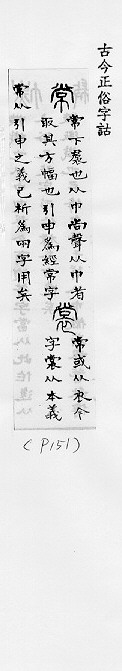 古今正俗字詁
常
常下裠也从巾尚聲从巾者
取其方幅也引申爲經常字
裳
常或从衣今
字裳从本義
常从引申之義已析爲兩字用矣
(P151)